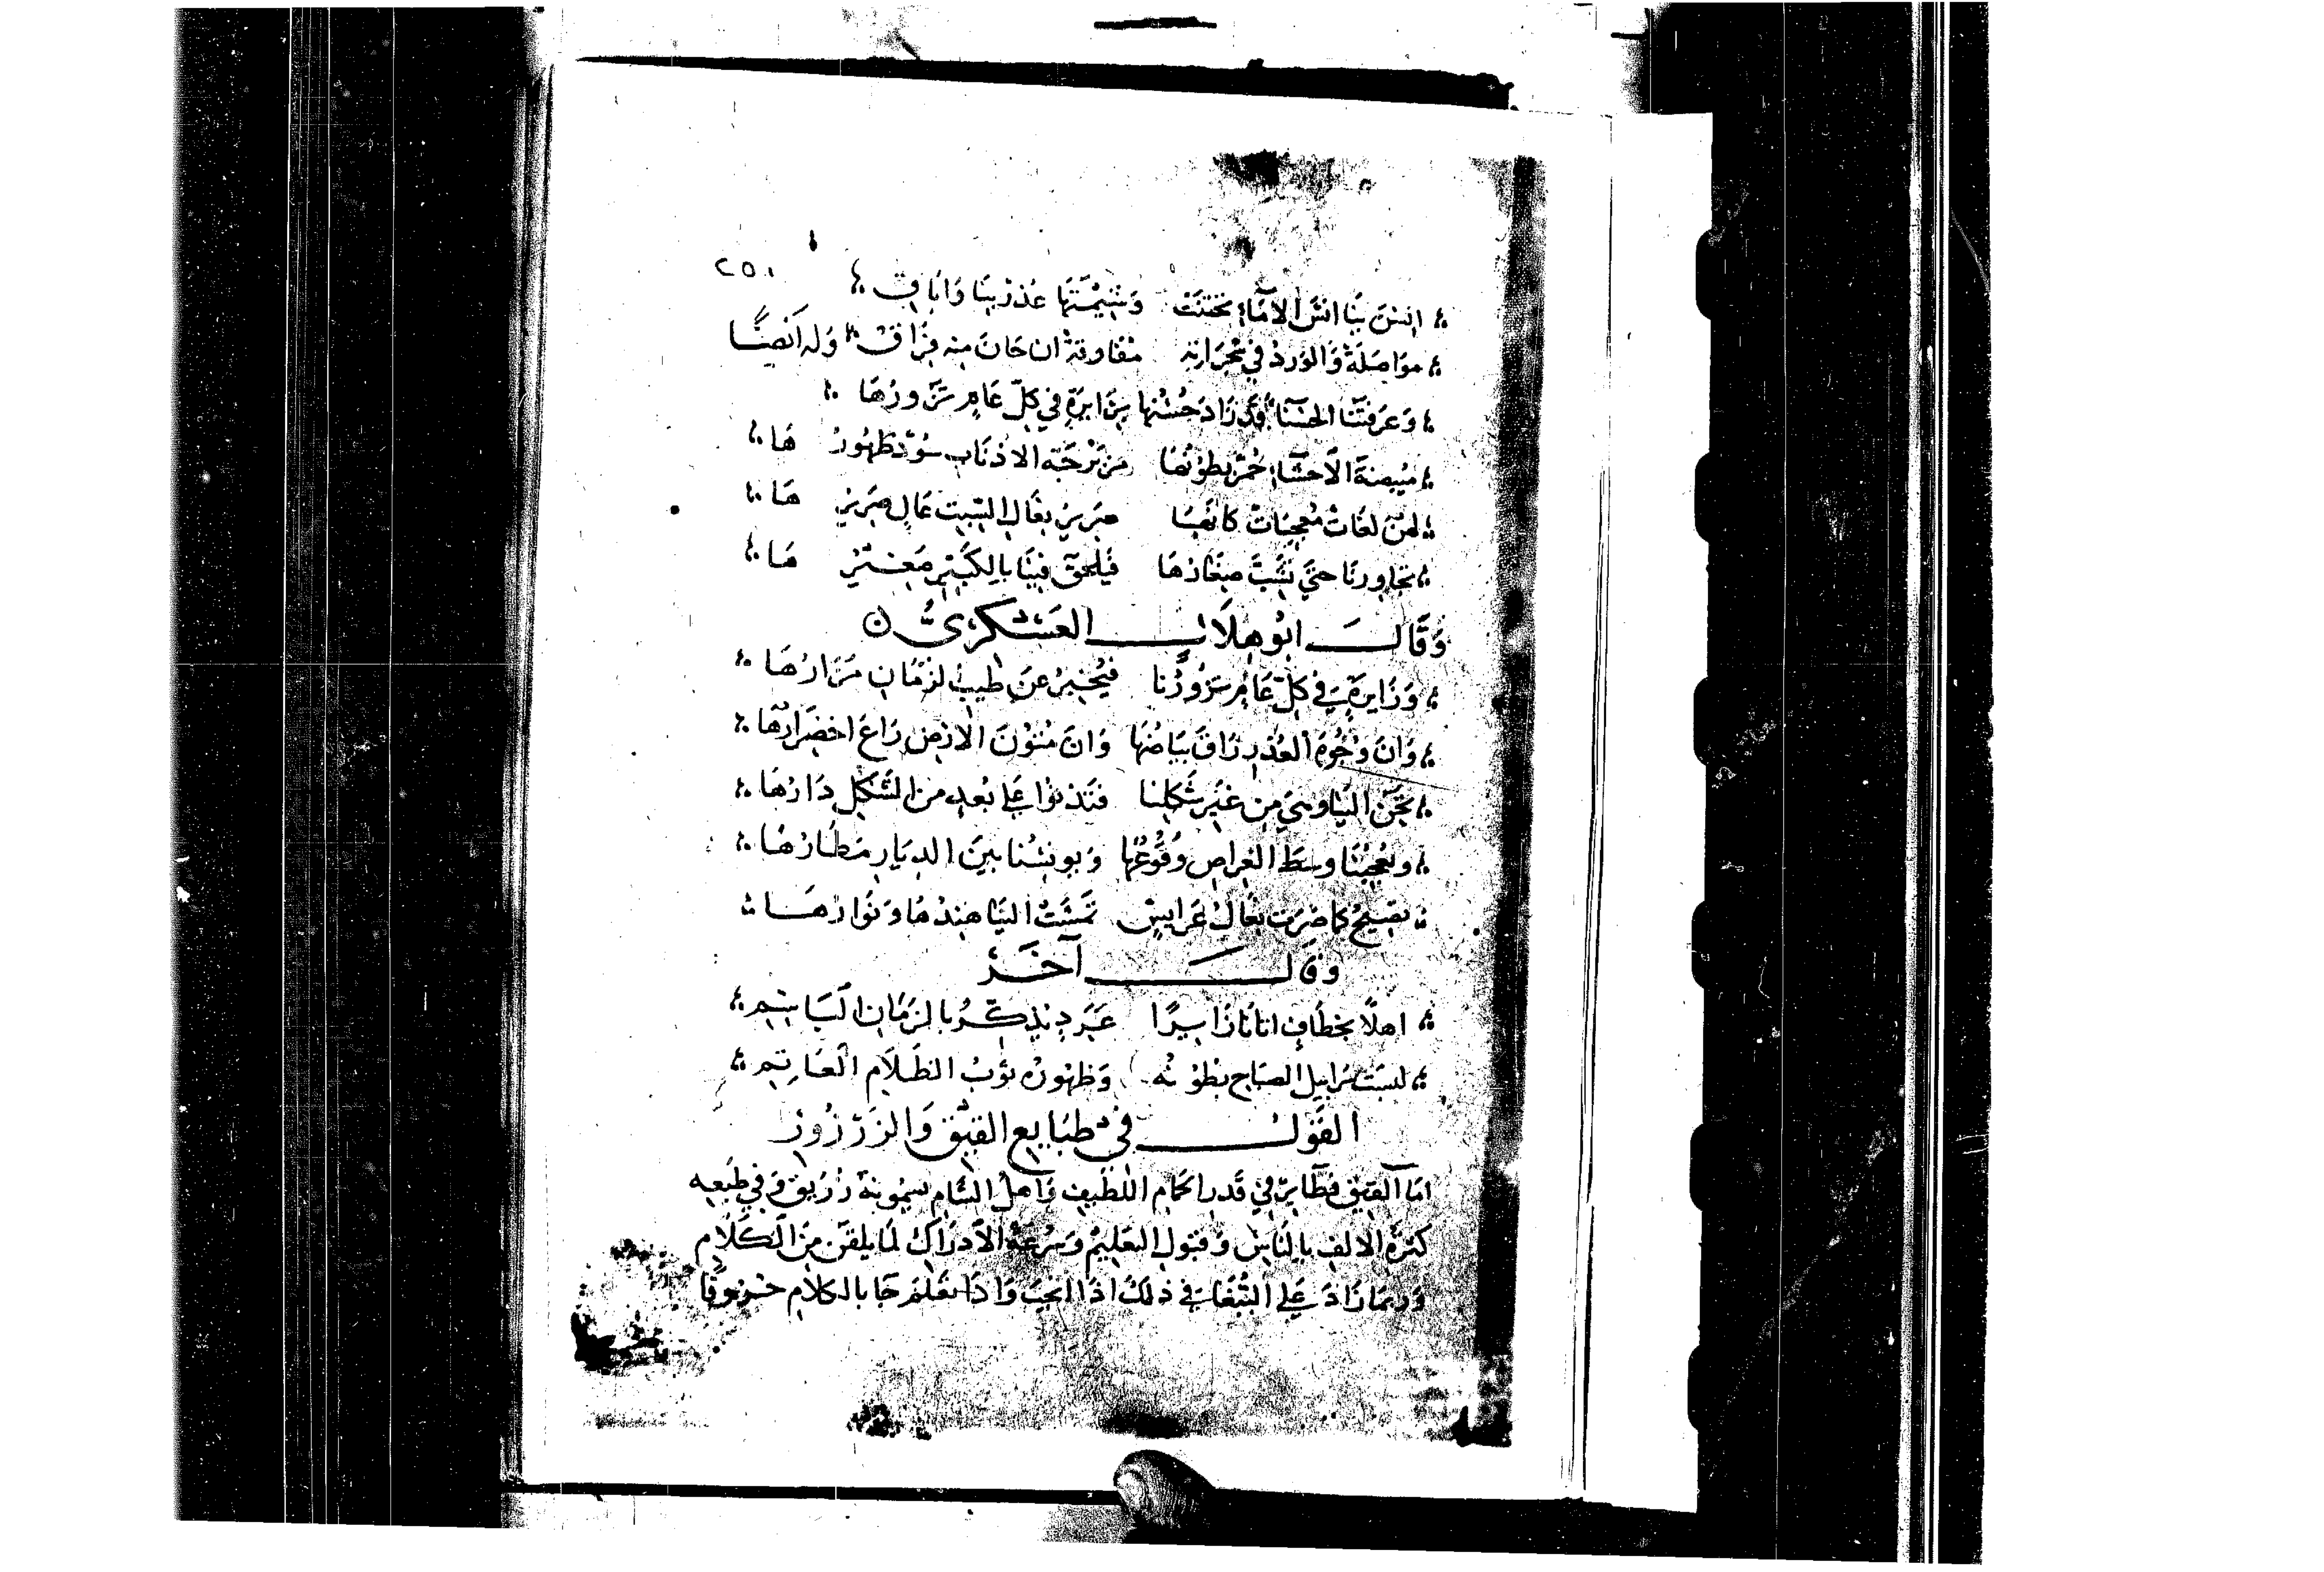 ٢٥١
انس بنا انس الاماء تحننت وشيمتها غدر بنا واباق
مواصلة والورد في شجراته مفارقة ان حان منه فراق وله ايضًا
وغرفتنا الحسناء قد زاد حسنها بزايرة في كل عام تزورها
مبيضة الاحشاء حمر بطونها مزبرجة الاذناب سود ظهورها
لهن لغات معجبات كانها صرير نعال السبت عال صريرها
تجاورنا حتى تشب صغارها فيلحق فينا بالكبير صغيرها
وقال ابو هلال العسكري
وزايرة في كل عام تزورنا فيخبر عن طيب الزمان مزارها
وان وجوه الغدر راق بياضها وان متون الارض راع اخضرارها
تحن الينا وهي من غير شكلنا فتدنوا على بعد من الشكل دارها
ويعجبنا وسط العراص وقوعها ويونسنا بين الديار مطارها
تصيح كما صرت نعال عرايس تمشت الينا هندها ونوارها
وقال آخر
اهلا بخطاف اتانا زايرًا غرد يذكر بالزمان الباسم
لبست سرابيل الصباح بطونه وظهوره ثوب الظلام العاتم
القول في طبايع القيق والزرزور
اما القيق فطاير في قدر الحمام اللطيف واهل الشام يسمونه زريق وفي طبعه
كثرة الالف بالناس وقبول التعليم وسرعة الادراك لما يلقن من الكلام
وربما زاد على الببغا في ذلك اذا انجب واذا تعلم جا بالكلام حروفًا